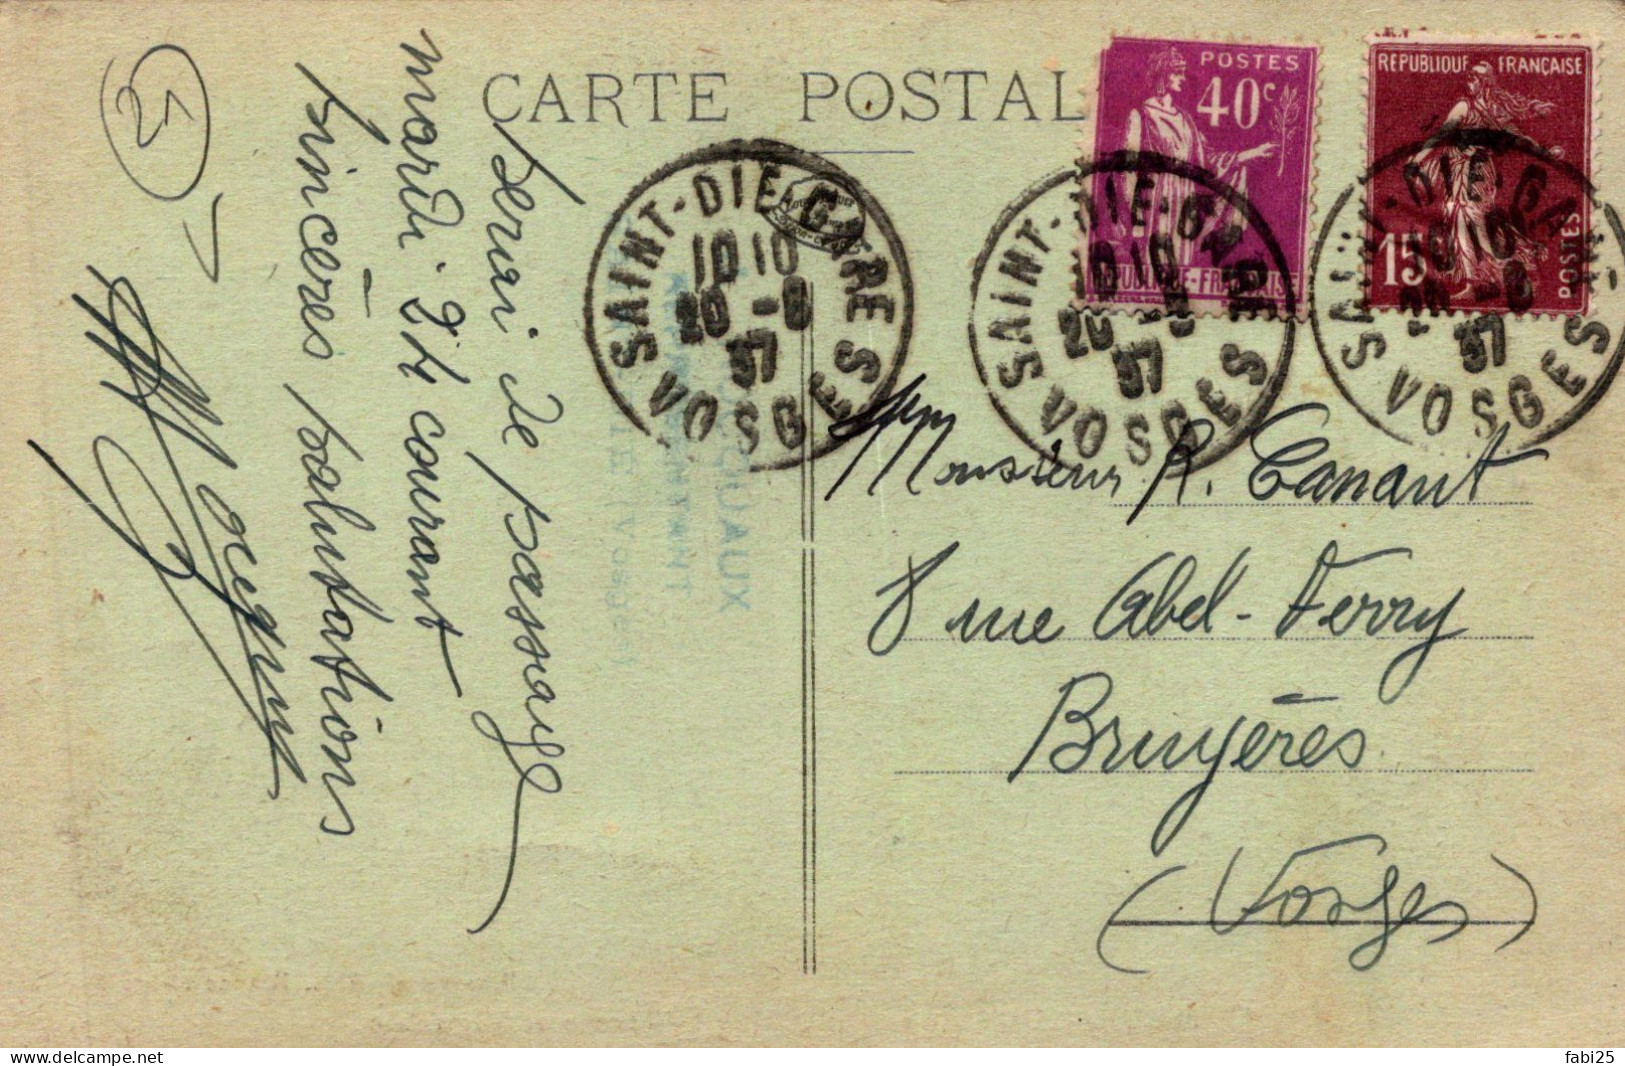 CARTE POSTAL
POSTES
40c
REPUBLIQUE-FRANÇAISE
REPUBLIQUE FRANÇAISE
15
POSTES
SAINT-DIE-GARE
10 10
20 -8
37
VOSGES
SAINT-DIE-GARE
10 10
20
37
VOSGES
SAINT-DIE-GARE
10
20 -8
37
VOSGES
52
Serai de passage
mardi 24 courant
sincères salutations
Monsieur R. Canant
8 rue Abel-Ferry
Bruyères
(Vosges)
delcampe.net
fabi25